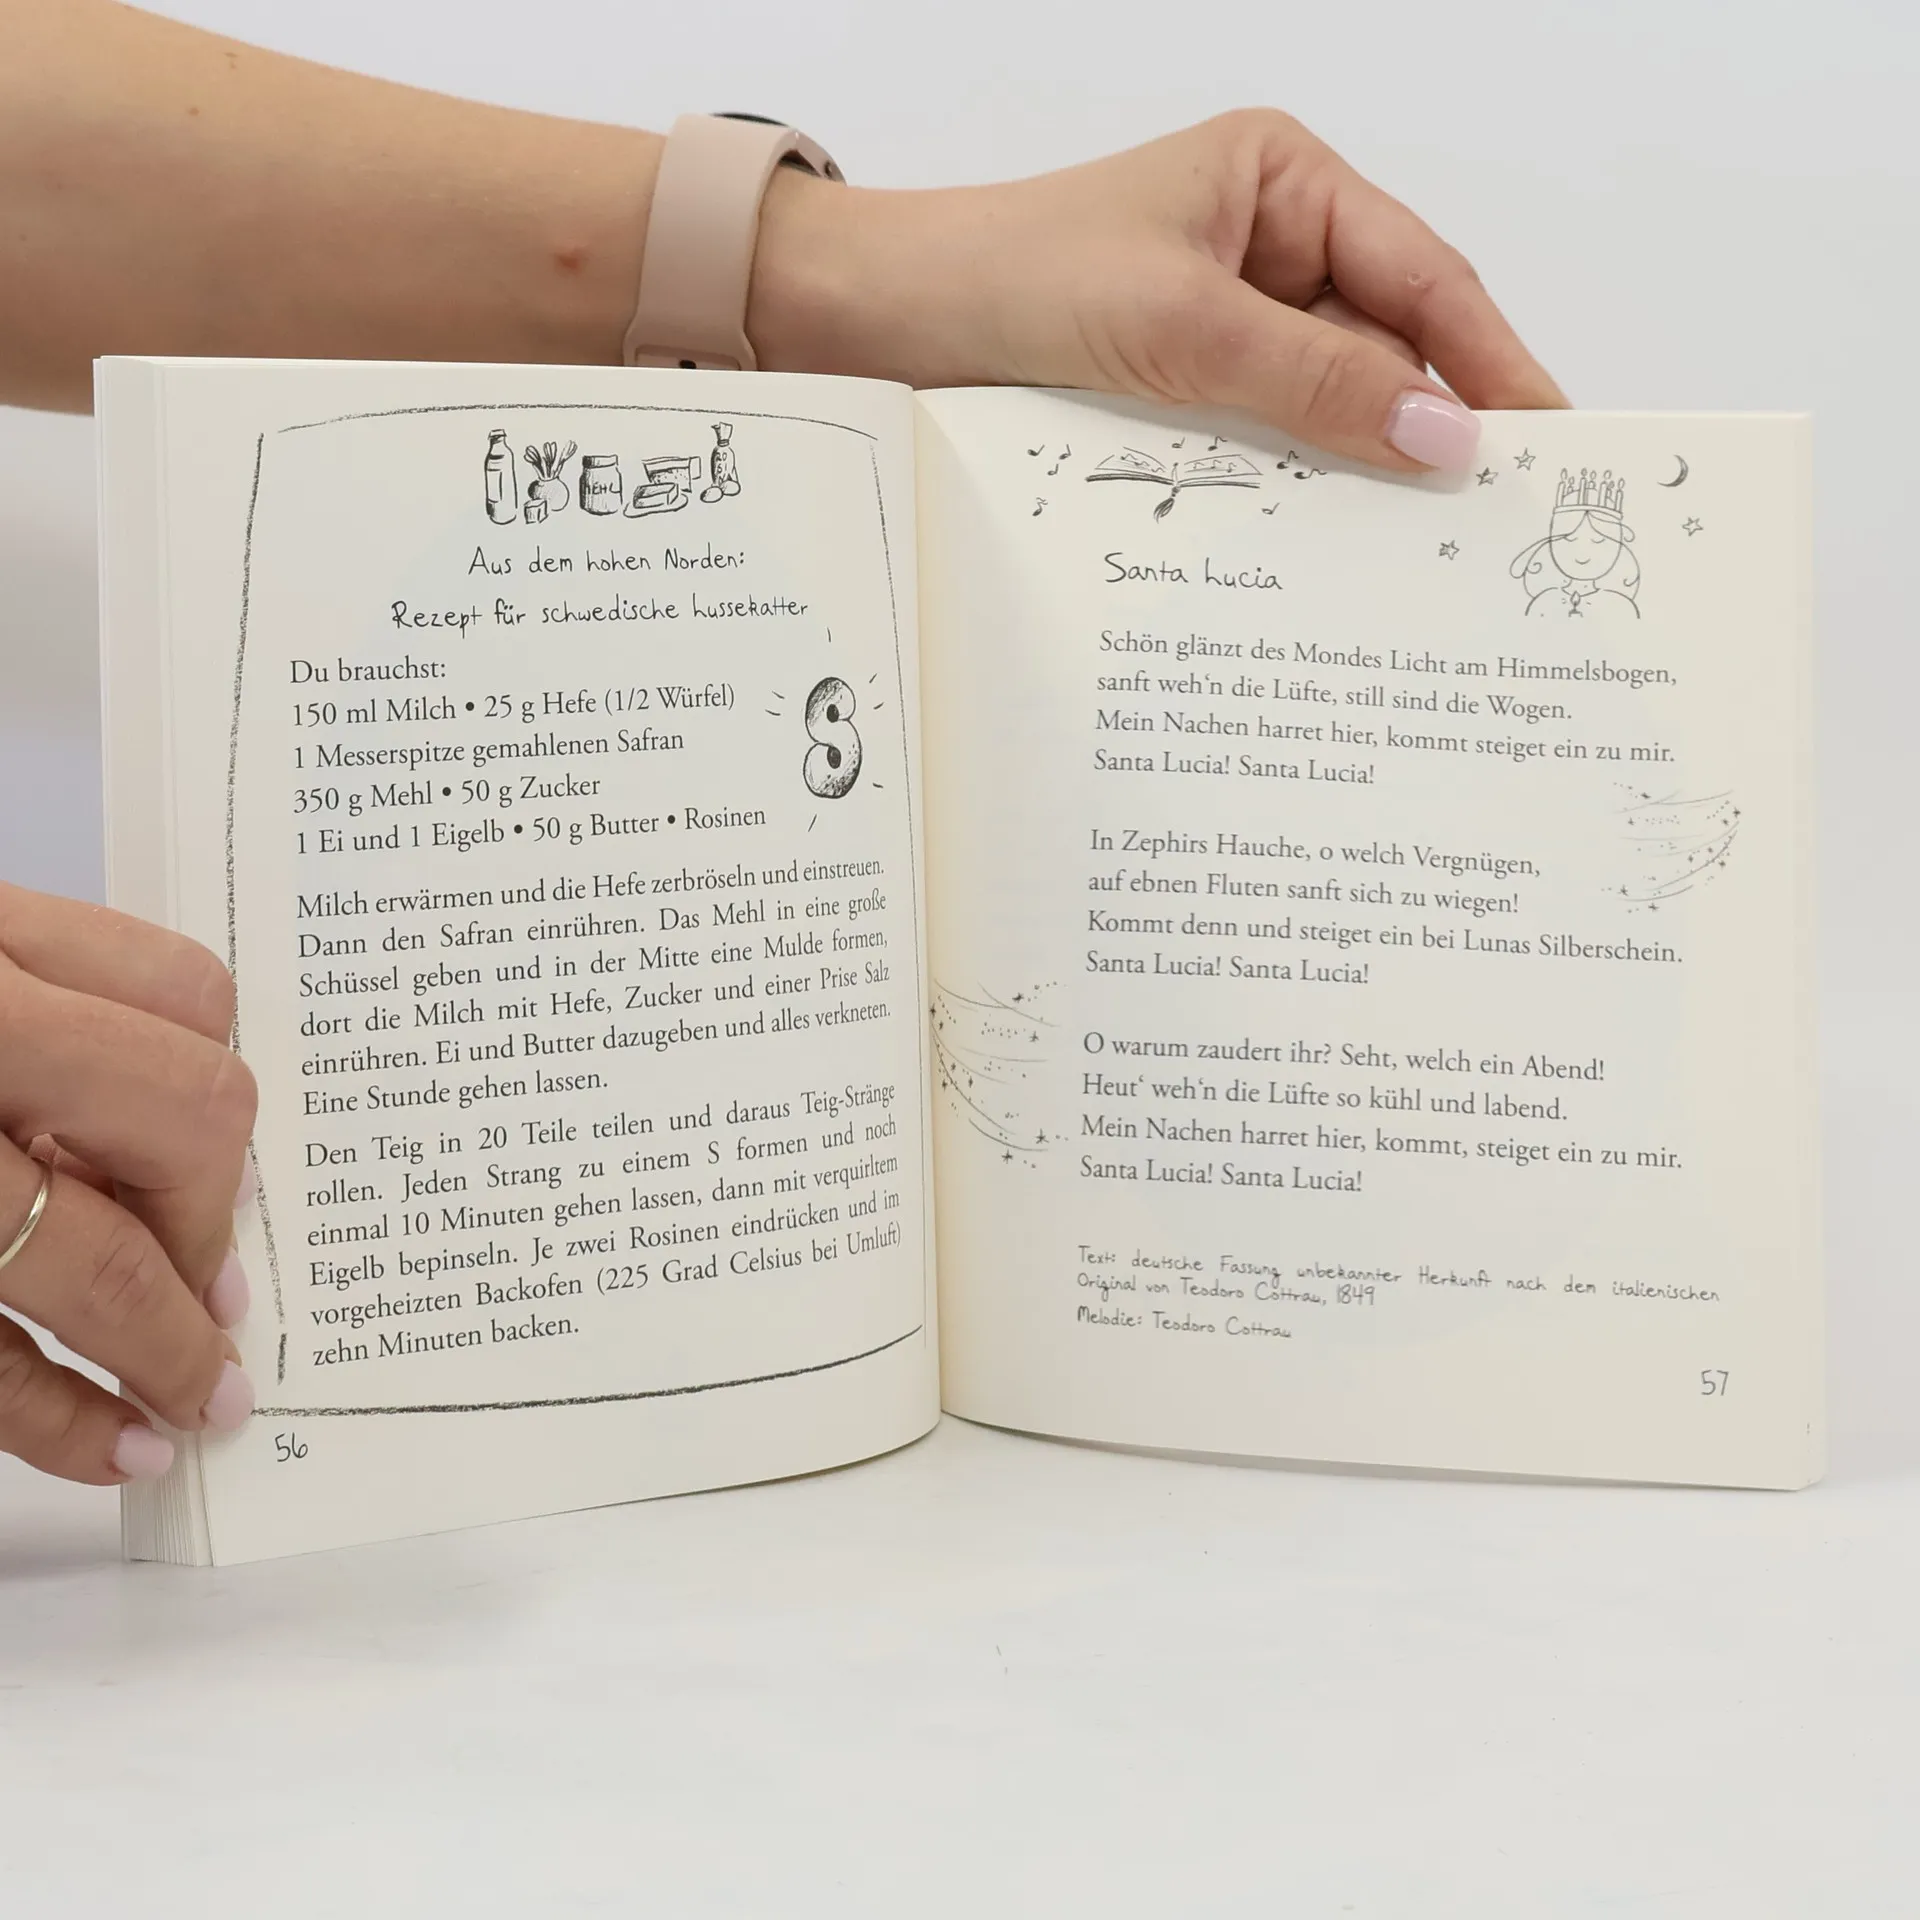 MEHL
Aus dem hohen Norden:
Rezept für schwedische Lussekatter
Du brauchst:
150 ml Milch • 25 g Hefe (1/2 Würfel)
1 Messerspitze gemahlenen Safran
350 g Mehl • 50 g Zucker
1 Ei und 1 Eigelb • 50 g Butter • Rosinen
Milch erwärmen und die Hefe zerbröseln und einstreuen.
Dann den Safran einrühren. Das Mehl in eine große
Schüssel geben und in der Mitte eine Mulde formen,
dort die Milch mit Hefe, Zucker und einer Prise Salz
einrühren. Ei und Butter dazugeben und alles verkneten.
Eine Stunde gehen lassen.
Den Teig in 20 Teile teilen und daraus Teig-Stränge
rollen. Jeden Strang zu einem S formen und noch
einmal 10 Minuten gehen lassen, dann mit verquirltem
Eigelb bepinseln. Je zwei Rosinen eindrücken und im
vorgeheizten Backofen (225 Grad Celsius bei Umluft)
zehn Minuten backen.
56
Santa Lucia
Schön glänzt des Mondes Licht am Himmelsbogen,
sanft weh‘n die Lüfte, still sind die Wogen.
Mein Nachen harret hier, kommt steiget ein zu mir.
Santa Lucia! Santa Lucia!
In Zephirs Hauche, o welch Vergnügen,
auf ebnen Fluten sanft sich zu wiegen!
Kommt denn und steiget ein bei Lunas Silberschein.
Santa Lucia! Santa Lucia!
O warum zaudert ihr? Seht, welch ein Abend!
Heut‘ weh‘n die Lüfte so kühl und labend.
Mein Nachen harret hier, kommt, steiget ein zu mir.
Santa Lucia! Santa Lucia!
Text: deutsche Fassung unbekannter Herkunft nach dem italienischen
Original von Teodoro Cottrau, 1849
Melodie: Teodoro Cottrau
57